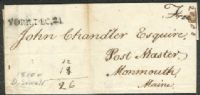 YORK, DEC, 21
Free
John Chandler Esquire,
Post Master
Monmouth
Maine
12
18
26